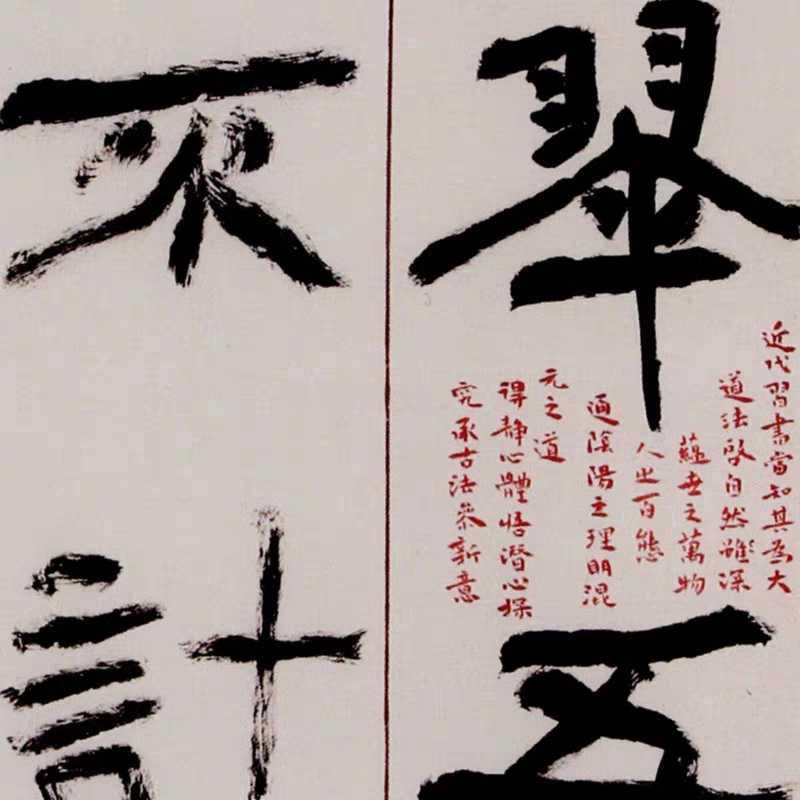 翠五
近代習書當知其為大
道法啟自然雖深
蘊世之萬物
人之百態
通陰陽之理明混
元之道
得静心體悟潛心探
究承古法參新意
不計